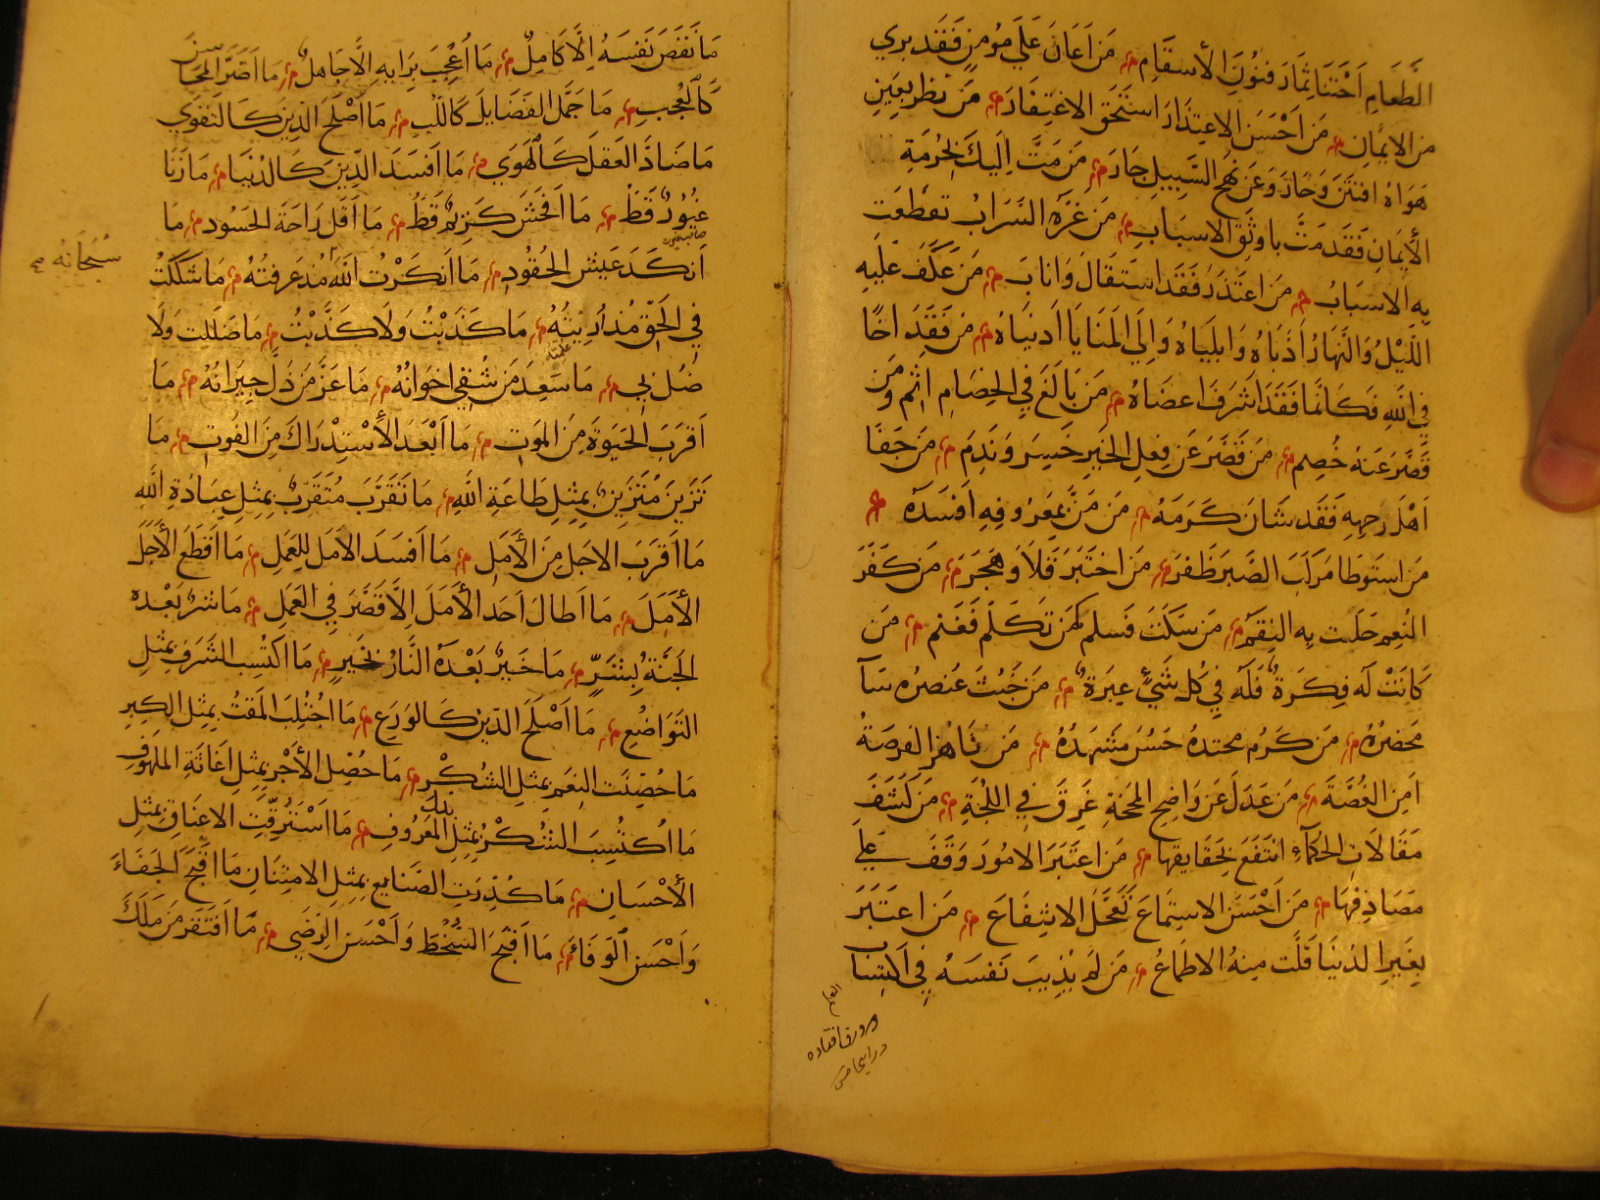 الطعام اجتنا ثمار فنون الأسقام من اعان علي مومن فقد بري
من الايمان من احسن الاعتذار استحق الاغتفار من نظر بعين
هواه افتتن وجار وعن نهج السبيل جار من مت اليك بحرمة
الأيمان فقد مت باوثق الاسباب من غره السراب تقطعت
به الاسباب من اعتذر فقد استقال واناب من عكف عليه
الليل والنهار اذباه وابلياه والي المنايا ادنياه من فقد اخا
في الله فكانما فقد اشرف اعضاه من بالغ في الخصام اثم ومن
قصر عنه خصم من قصر عن فعل الخير خسر وندم من جفا
اهل رحمه فقد شان كرمه من من بمعروفه افسده
من استوطا مركب الصبر ظفر من اختبر قلا وهجر من كفر
النعم حلت به النقم من سكت فسلم كمن تكلم فغنم من
كانت له فكرة فله في كل شيء عبرة من خبث عنصره سآ
محضره من كرم محتده حسن مشهده من ناهز الفرصة
امن الغصة من عدل عن واضح المحجة غرق في اللجة من كشف
مقالات الحكمآء انتفع بحقايقها من اعتبر الامور وقف علي
مصادقها من احسن الاستماع تعجل الانتفاع من اعتبر
بغير الدنيا قلت منه الاطماع من لم يذيب نفسه في اكتساب
العلم
دو ورق افتاده
ما نقص نفسه الا كامل ما اعجب برايه الا جاهل ما اضر المحاسن
كالعجب ما جمل الفضايل كاللب ما اصلح الدين كالتقوي
ما ضاد العقل كالهوي ما افسد الدين كالدنيا ما زنا
غيور قط ما افحش كريم قط ما اقل راحة الحسود ما
انكد عيش الحقود ما انكرت الله مذ عرفته ما شككت
سبحانه صح
في الحق مذ اريته ما كذبت ولا كذبت ما ضللت ولا
ضل بي ما سعد من شقي اخوانه ما عز من ذل جيرانه ما
اقرب الحيوة من الموت ما ابعد الأستدراك من الفوت ما
تزين متزين بمثل طاعة الله ما تقرب متقرب بمثل عبادة الله
ما اقرب الاجل من الأمل ما افسد الامل للعمل ما اقطع الأجل
الأمل ما اطال احد الأمل الا قصر في العمل ما شر بعده
الجنة بشر ما خير بعده النار بخير ما اكتسب الشرف بمثل
التواضع ما اصلح الدين كالورع ما اجتلب المقت بمثل الكبر
ما حصنت النعم بمثل الشكر ما حصل الأجر بمثل اغاثة الملهوف
ما اكتسب الشكر بمثل بذل المعروف ما استرقت الاعناق بمثل
الأحسان ما كدرت الصنايع بمثل الامتنان ما اقبح الجفاء
واحسن الوفاء ما اقبح السخط واحسن الرضي ما افتقر من ملك